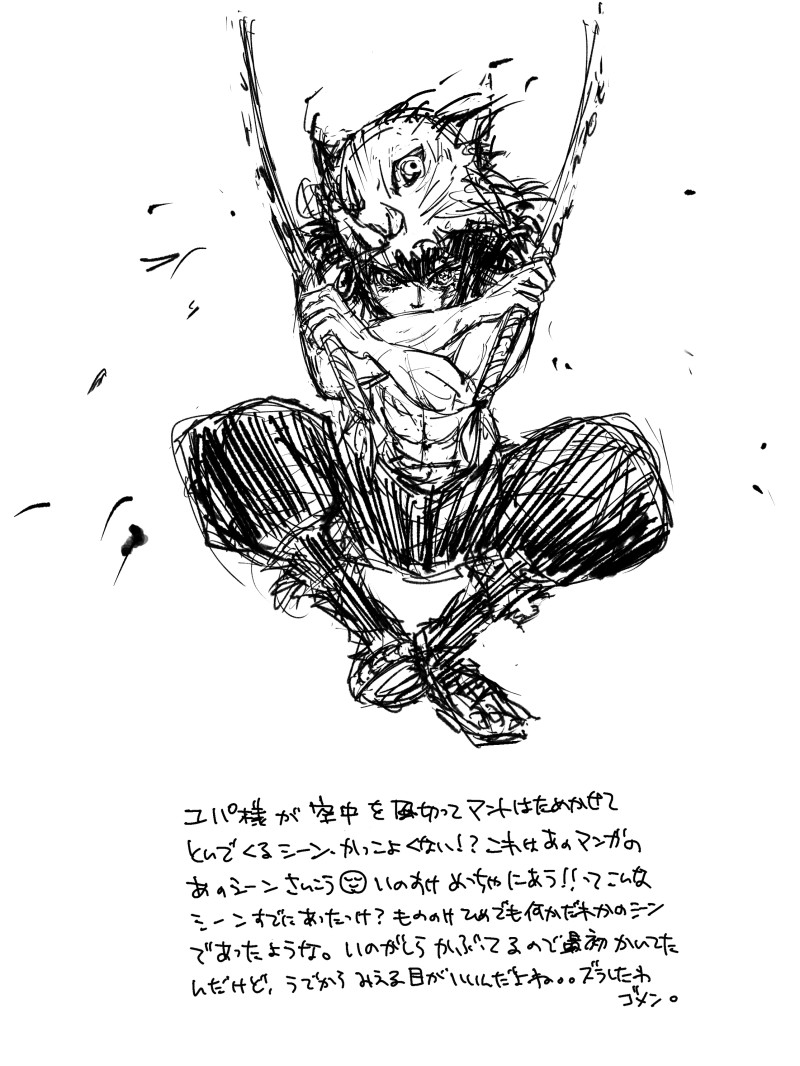 ユパ様が空中を風切ってマントはためかせて
とんでくるシーン、かっこよくない!?これはあのマンガの
あのシーンさんこう いのすけめっちゃにあう!!ってこんな
シーンすでにあったっけ?もののけひめでも何かだれかのシーン
であったような。いのがしらかぶってるので最初かいてた
んだけど、うでからみえる目がいいんだよね。。ズラしたわ
ゴメン。